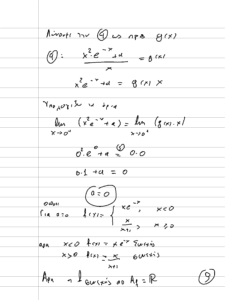 Λύνουμε την ① ως προς g(x)
①: \frac{x² e^{-x} + α}{x} = g(x)
x² e^{-x} + α = g(x) x
Υπολογίζω τα όρια
lim_{x→0} (x² e^{-x} + α) = lim_{x→0} (g(x)·x)
0² · e⁰ + α = 0·0
0·1 + α = 0
α = 0
Για α=0 f(x) = { x e^{-x}, x<0
\frac{x}{x+1}, x ≥ 0
αρα x<0 f(x) = x e^{-x} συνεχής
x>0 f(x) = \frac{x}{x+1} συνεχής
Αρα η f συνεχής στο A_f = ℝ